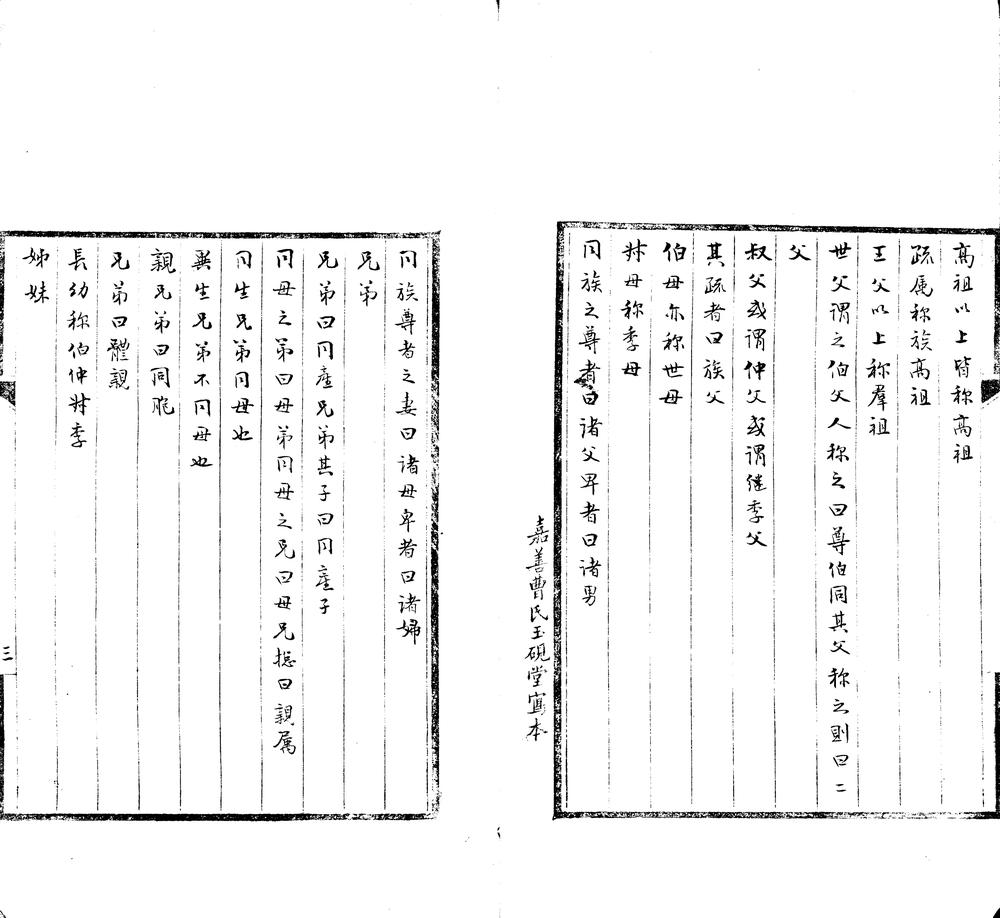 高祖以上皆称高祖
疏属称族高祖
王父以上称羣祖
世父謂之伯父人称之曰尊伯同其父称之則曰二
父
叔父或謂仲父或謂继季父
其疏者曰族父
伯母亦称世母
尗母称季母
同族之尊者曰诸父卑者曰诸男
嘉善曹氏玉硯堂寫本
同族尊者之妻曰诸母卑者曰诸婦
兄弟
兄弟曰同產兄弟其子曰同產子
同母之弟曰母弟同母之兄曰母兄捴曰親属
同生兄弟同母也
異生兄弟不同母也
親兄弟曰同胞
兄弟曰體親
長幼称伯仲尗季
姊妹
三